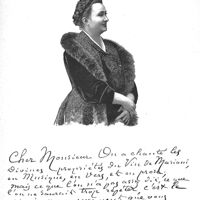 Cher Monsieur On a chanté les
divines propriétés du Vin de Mariani
en Musique, en vers et en prose,
mais ce que l'on n'a pas assez dit, ce que
l'on ne saurait trop répéter c'est la
que vous